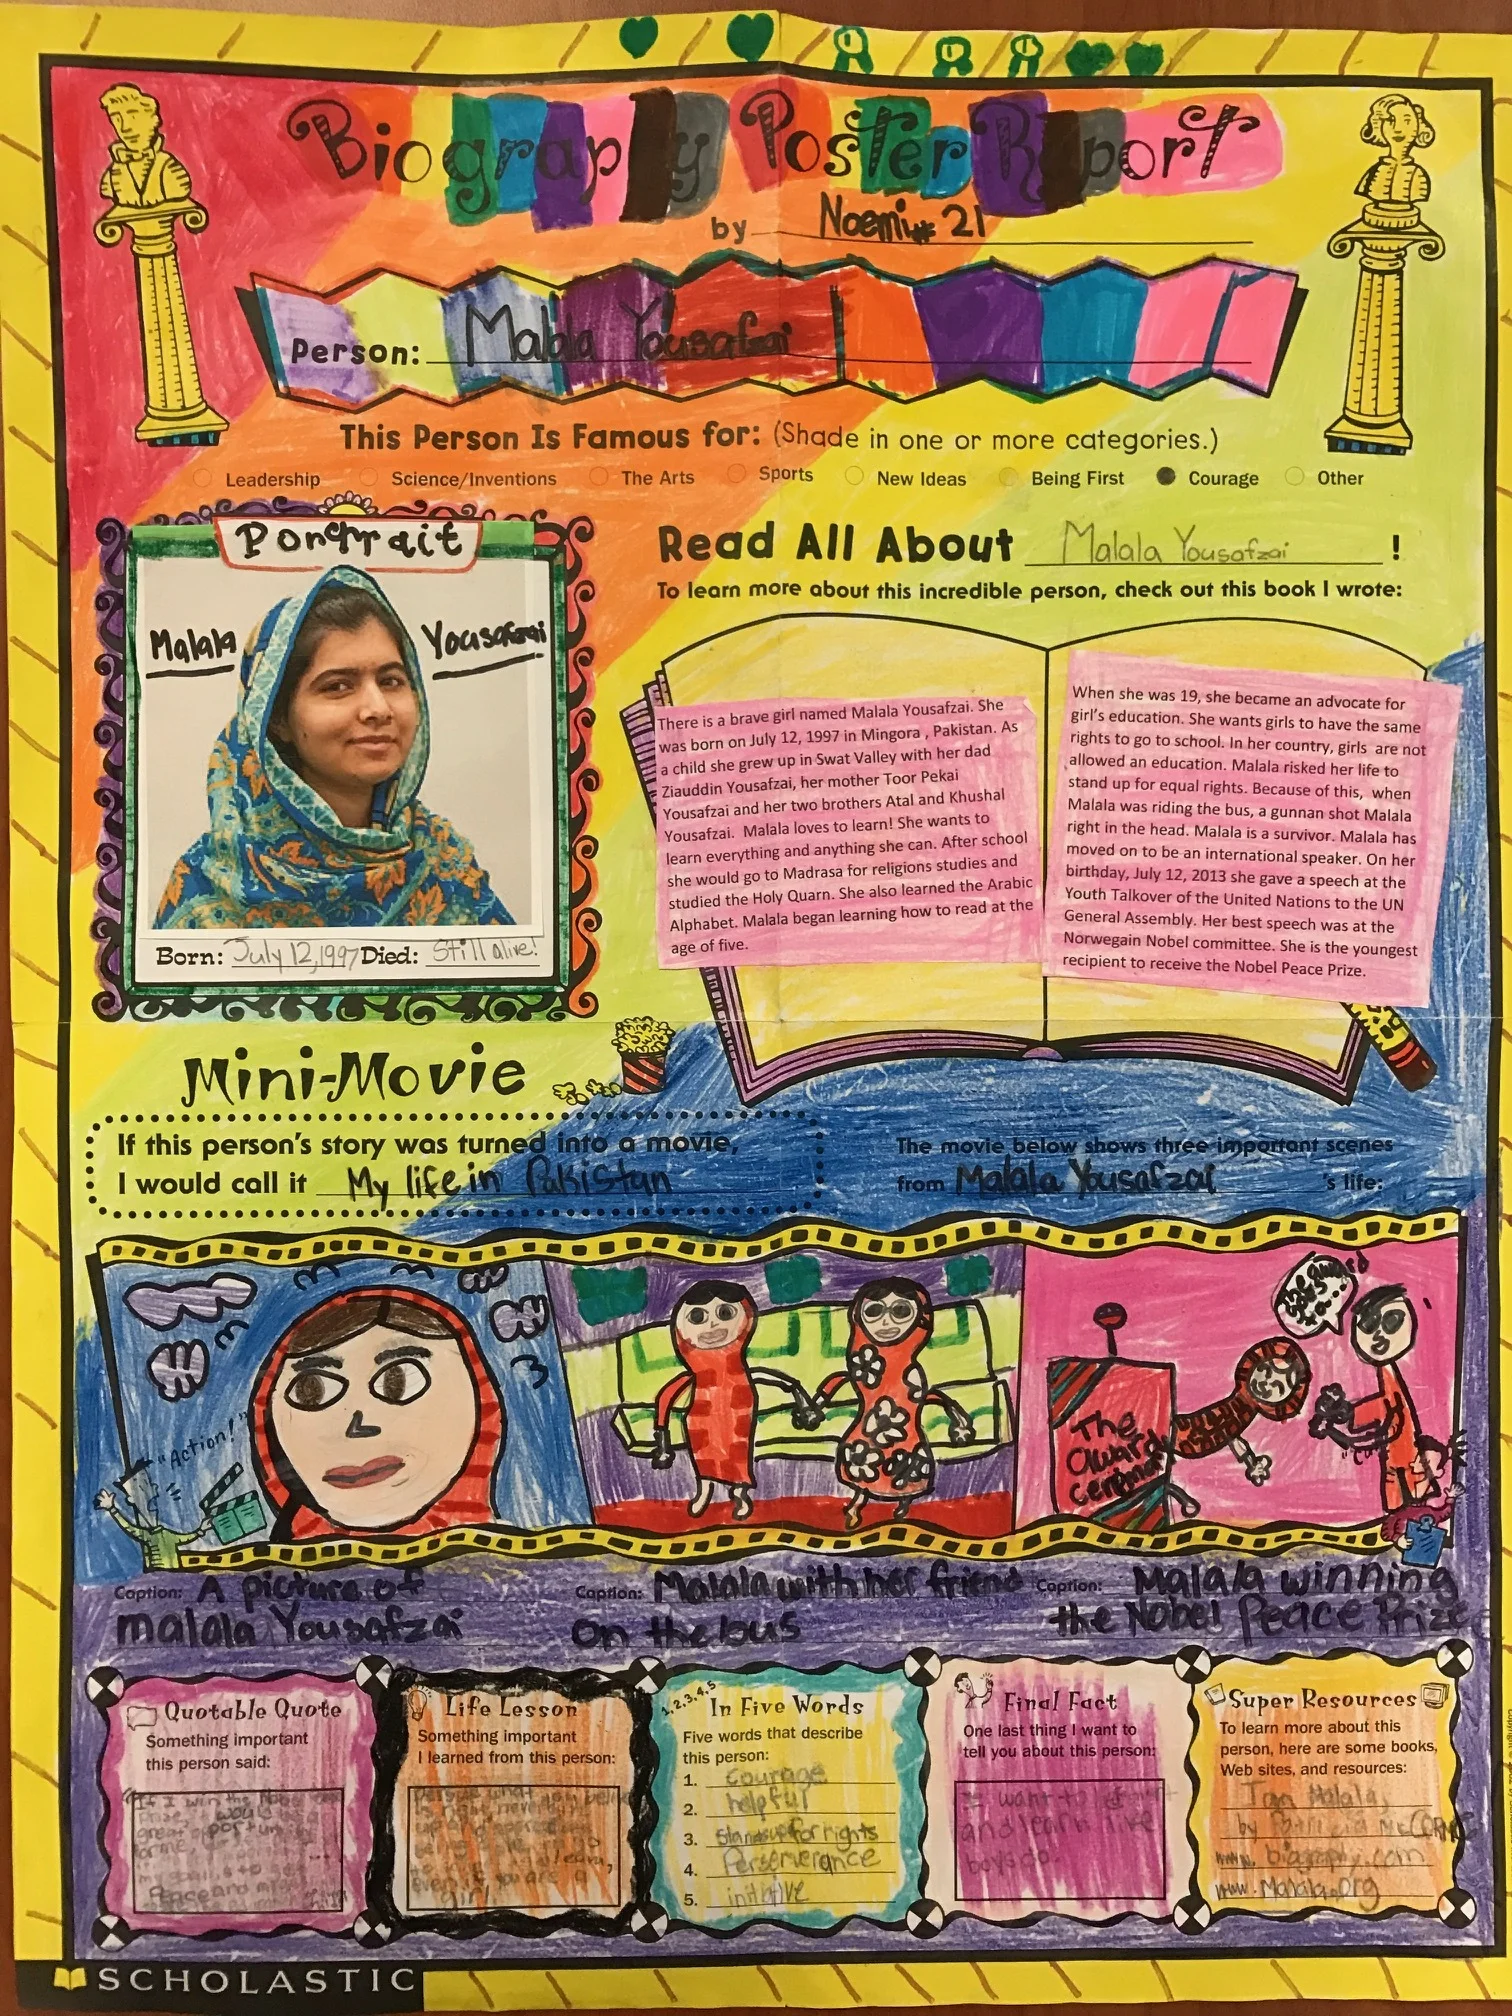 Biography Poster Report
by Noemi #21
Person: Malala Yousafzai
This Person Is Famous for: (Shade in one or more categories.)
Leadership Science/Inventions The Arts Sports New Ideas Being First Courage Other
Portrait
Malala Yousafzai
Born: July 12, 1997 Died: Still alive!
Read All About Malala Yousafzai!
To learn more about this incredible person, check out this book I wrote:
There is a brave girl named Malala Yousafzai. She
was born on July 12, 1997 in Mingora , Pakistan. As
a child she grew up in Swat Valley with her dad
Ziauddin Yousafzai, her mother Toor Pekai
Yousafzai and her two brothers Atal and Khushal
Yousafzai. Malala loves to learn! She wants to
learn everything and anything she can. After school
she would go to Madrasa for religions studies and
studied the Holy Quarn. She also learned the Arabic
Alphabet. Malala began learning how to read at the
age of five.
When she was 19, she became an advocate for
girl's education. She wants girls to have the same
rights to go to school. In her country, girls are not
allowed an education. Malala risked her life to
stand up for equal rights. Because of this, when
Malala was riding the bus, a gunnan shot Malala
right in the head. Malala is a survivor. Malala has
moved on to be an international speaker. On her
birthday, July 12, 2013 she gave a speech at the
Youth Talkover of the United Nations to the UN
General Assembly. Her best speech was at the
Norwegain Nobel committee. She is the youngest
recipient to receive the Nobel Peace Prize.
Mini-Movie
If this person's story was turned into a movie,
I would call it My life in Pakistan
The movie below shows three important scenes
from Malala Yousafzai 's life:
"Action!"
The
award
Caption: A picture of
malala Yousafzai
Caption: Malala with her friend
on the bus
Caption: Malala winning
the Nobel Peace Prize
Quotable Quote
Something important
this person said:
"If I win the
prize, would
great
Peace and
Life Lesson
Something important
I learned from this person:
learn,
even if you are a
girl.
1,2,3,4,5
In Five Words
Five words that describe
this person:
1. courage
2. helpful
3. Stands up for rights
4. Perserverance
5. initiative
Final Fact
One last thing I want to
tell you about this person:
I want to
and learn like
boys do.
Super Resources
To learn more about this
person, here are some books,
Web sites, and resources:
I am Malala,
by Patricia McCormick
www. biography.com
www.Malala.org
SCHOLASTIC